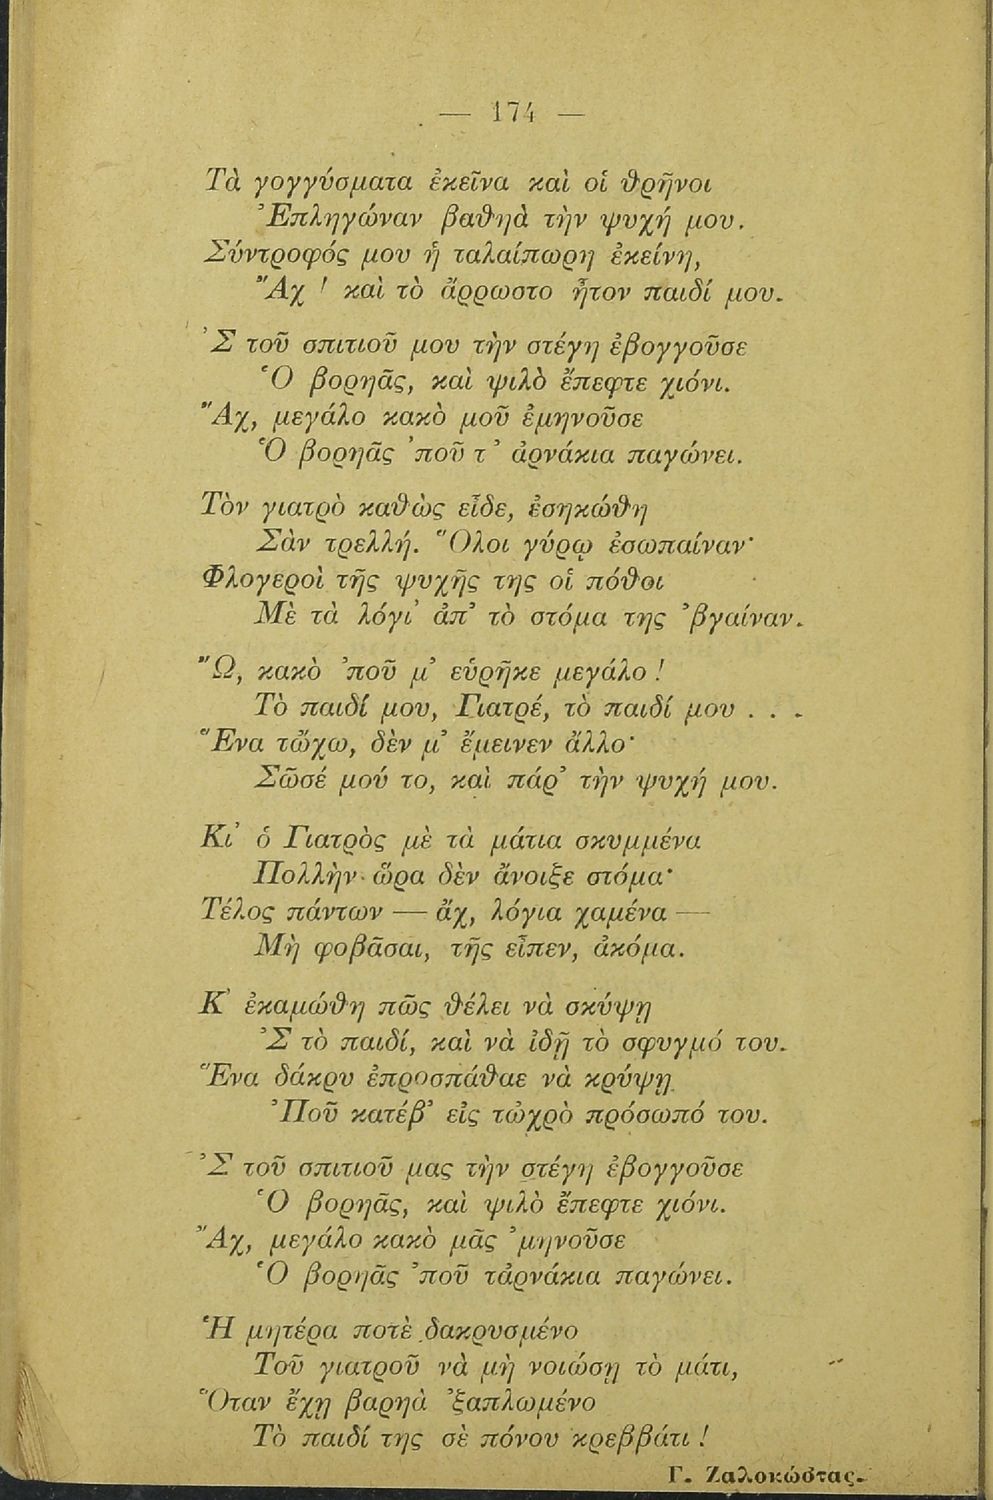 — 174 —
Τὰ γογγύσματα ἐκεῖνα καὶ οἱ θρῆνοι
Ἐπληγώναν βαθηὰ τὴν ψυχή μου.
Σύντροφός μου ἡ ταλαίπωρη ἐκείνη,
Ἄχ ! καὶ τὸ ἄρρωστο ἦτον παιδί μου.
Ἐ τοῦ σπιτιοῦ μου τὴν στέγη ἐβογγοῦσε
Ὁ βορηᾶς, καὶ ψιλὸ ἔπεφτε χιόνι.
Ἄχ, μεγάλο κακὸ μοῦ ἐμηνοῦσε
Ὁ βορηᾶς ’ποῦ τ’ ἀρνάκια παγώνει.
Τὸν γιατρὸ καθὼς εἶδε, ἐσηκώθη
Σὰν τρελλή. Ὅλοι γύρῳ ἐσωπαίναν·
Φλογεροὶ τῆς ψυχῆς της οἱ πόθοι
Μὲ τὰ λόγι’ ἀπ’ τὸ στόμα της ’βγαίναν.
Ὤ, κακὸ ’ποῦ μ’ εὑρῆκε μεγάλο !
Τὸ παιδί μου, Γιατρέ, τὸ παιδί μου . . .
Ἕνα τὤχω, δὲν μ’ ἔμεινεν ἄλλο·
Σῶσέ μού το, καὶ πάρ’ τὴν ψυχή μου.
Κι’ ὁ Γιατρὸς μὲ τὰ μάτια σκυμμένα
Πολλὴν ὥρα δὲν ἄνοιξε στόμα·
Τέλος πάντων — ἄχ, λόγια χαμένα —
Μὴ φοβᾶσαι, τῆς εἶπεν, ἀκόμα.
Κ’ ἐκαμώθη πῶς θέλει νὰ σκύψῃ
’Σ τὸ παιδί, καὶ νὰ ἰδῇ τὸ σφυγμό του.
Ἕνα δάκρυ ἐπροσπάθαε νὰ κρύψῃ
’Ποῦ κατέβ’ εἰς τὠχρὸ πρόσωπό του.
’Σ τοῦ σπιτιοῦ μας τὴν στέγη ἐβογγοῦσε
Ὁ βορηᾶς, καὶ ψιλὸ ἔπεφτε χιόνι.
Ἄχ, μεγάλο κακὸ μᾶς ’μηνοῦσε
Ὁ βορηᾶς ’ποῦ τἀρνάκια παγώνει.
Ἡ μητέρα ποτὲ δακρυσμένο
Τοῦ γιατροῦ νὰ μὴ νοιώσῃ τὸ μάτι,
Ὅταν ἔχῃ βαρηὰ ’ξαπλωμένο
Τὸ παιδί της σὲ πόνου κρεββάτι !
Γ. Ζαλοκώστας.